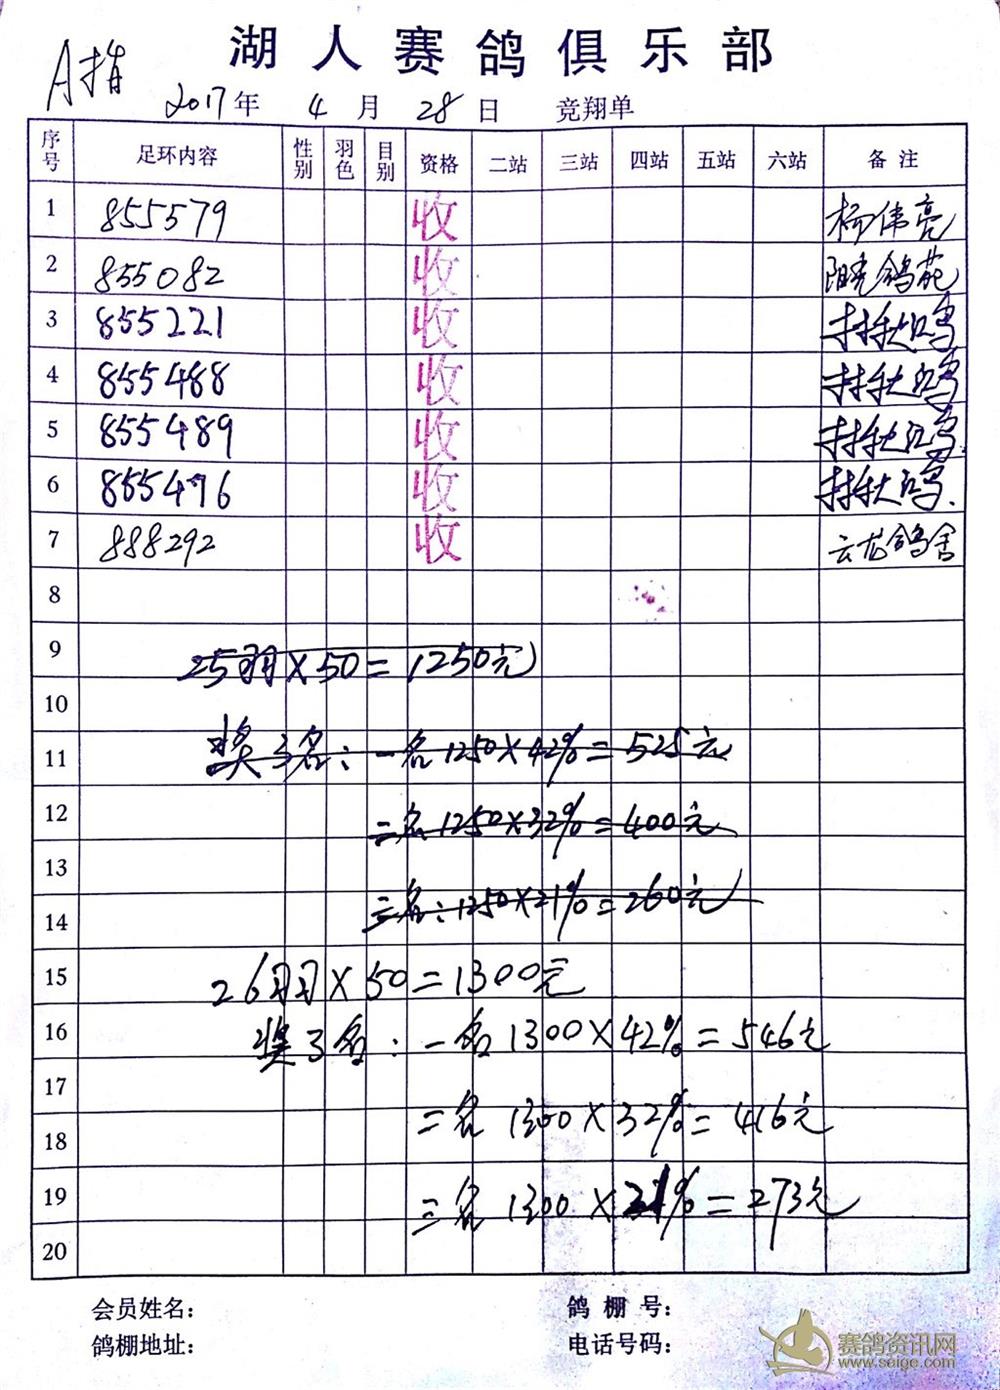 湖人赛鸽俱乐部
A指
2017年 4月 28日 竞翔单
序号 足环内容 性别 羽色 目别 资格 二站 三站 四站 五站 六站 备注
1 855579 收 杨伟亮
2 855082 收 阳光鸽苑
3 855221 收 林秋鸣
4 855488 收 林秋鸣
5 855489 收 林秋鸣
6 855476 收 林秋鸣.
7 888292 收 云龙鸽舍
8
9 25羽×50=1250元
10
11 奖3名:一名1250×42%=525元
12 二名1250×32%=400元
13
14 三名:1250×21%=260元
15 26羽×50=1300元
16 奖3名:一名1300×42%=546元
17
18 二名1300×32%=416元
19 三名1300×21%=273元
20
会员姓名: 鸽棚号:
鸽棚地址: 电话号码:
赛鸽资讯网
www.saige.com